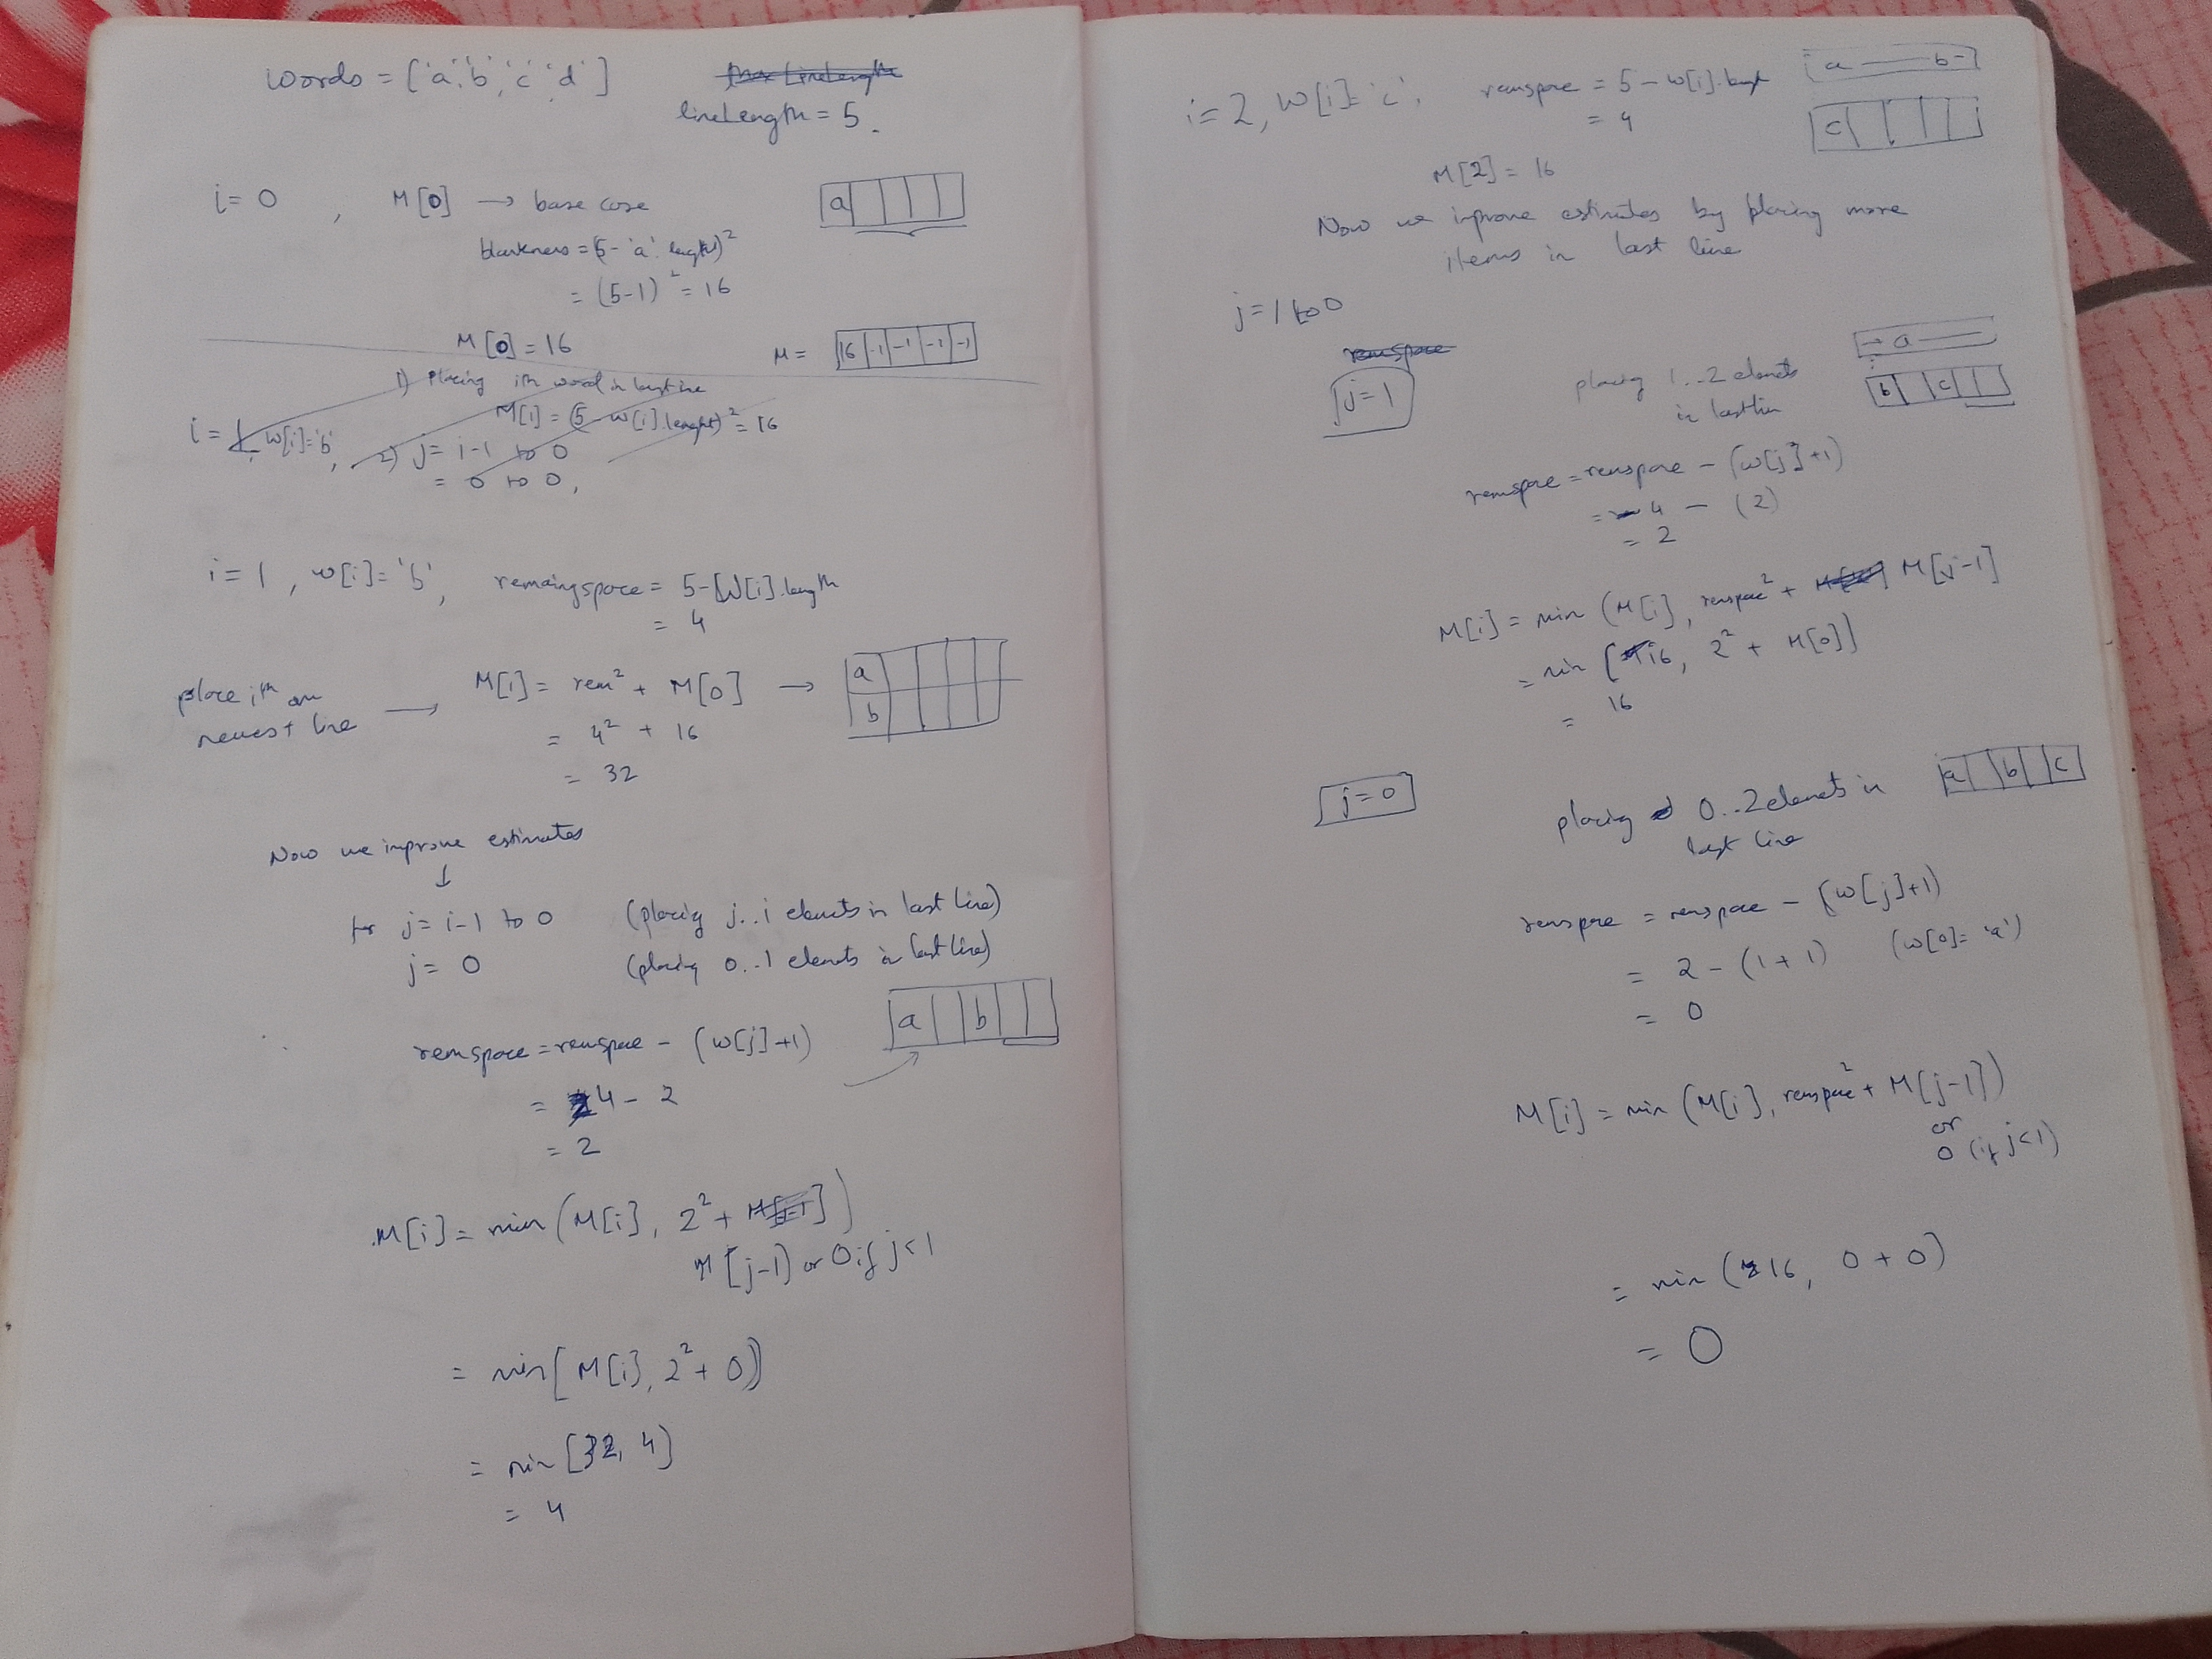 words = ['a','b','c','d']
lineLength = 5.
i = 0 , M[0] → base case
a
= (5-1)² = 16
M[0] = 16
M = 16 -1 -1 -1 -1
1) Placing ith word in last line
M[i] = (5 - w[i].lenght)² = 16
i = 1, w[i]='b', 2) j = i-1 to 0
= 0 to 0,
i = 1 , w[i] = 'b', remaingspace = 5-[W[i].length
= 4
place ith on
newest line → M[i] = rem² + M[0] →
a
b
= 4² + 16
= 32
Now we improve estimates
↓
for j = i-1 to 0 (placing j..i elements in last line)
j = 0 (placing 0..1 elements in last line)
a b
remspace = remspace - (w[j]+1)
= 4 - 2
= 2
M[i] = min (M[i], 2² + )
M[j-1) or 0 if j<1
= min[M[i], 2² + 0)]
= min[32, 4]
= 4
i = 2, w[i]='c', remspace = 5 - w[i].length
= 4
a b
c
M[2] = 16
Now we improve estimates by placing more
items in last line
j = 1 to 0
remspace
j = 1
placing 1..2 elements
in last lin
a
b c
remspace = remspace - (w[j]+1)
= 4 - (2)
= 2
M[i] = min (M[i], remspace² + M[j-1]
= min [16, 2² + M[0])
= 16
j = 0
placing 0..2 elements in
last line
a b c
remspace = remspace - (w[j]+1)
= 2 - (1+1) (w[0]= 'a')
= 0
M[i] = min (M[i], remspace² + M[j-1])
or
0 (if j<1)
= min (16, 0 + 0)
= 0